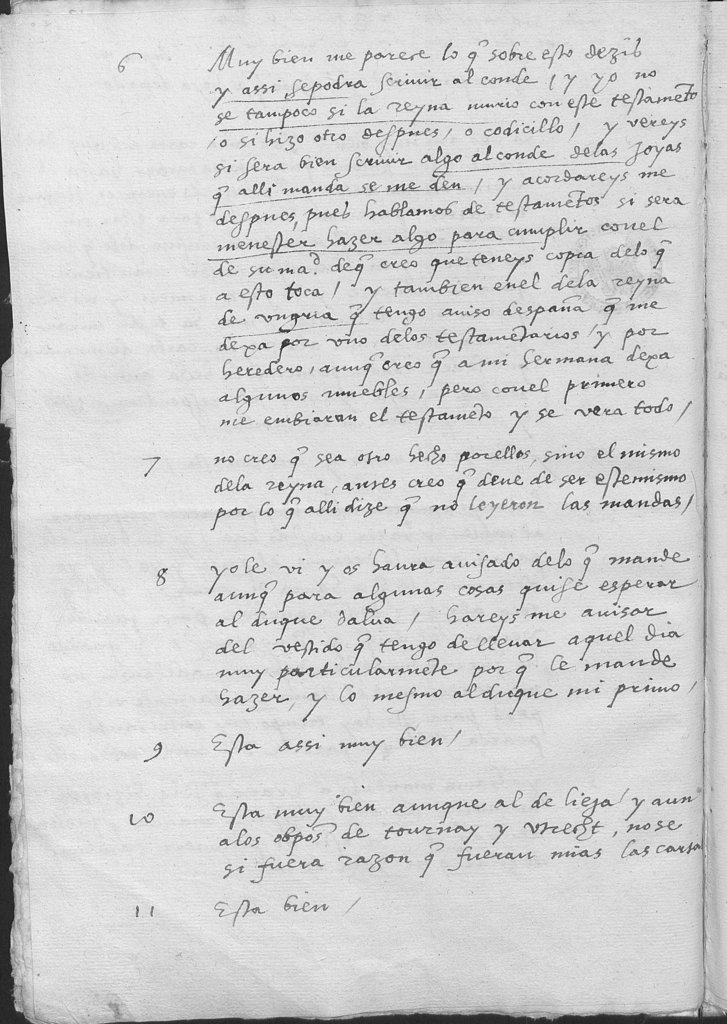 6 Muy bien me parece lo q̃ sobre esto dezis
y assi sepodra scriuir al conde / y yo no
se tampoco si la reyna murio con este testameto
/ o si hizo otro despues / o codicillo / y vereys
si sera bien scriuir algo al conde delas Joyas
q̃ alli manda se me den / y acordareys me
despues, pues hablamos de testametos si sera
menester hazer algo para cumplir conel
de su mad. deq̃ creo que teneys copia delo q̃
a esto toca / y tambien enel dela reyna
de vngria q̃ tengo auiso despaña q̃ me
dexa por vno delos testametarios / y por
heredero, aunq̃ creo q̃ a mi hermana dexa
algunos muebles, pero conel primero
me embiaran el testameto y se vera todo /
7 no creo q̃ sea otro hecho porellos, sino el mismo
dela reyna, antes creo q̃ deue de ser estemismo
por lo q̃ alli dize q̃ no leyeron las mandas /
8 yo le vi y os haura auisado delo q̃ mande
aunq̃ para algunas cosas quise esperar
al duque dalua / hareys me auisar
del vestido q̃ tengo de lleuar aquel dia
muy particularmete por q̃ le mande
hazer, y lo mesmo al duque mi primo /
9 Esta assi muy bien /
10 Esta muy bien aunque al de lieja / y aun
alos obpos de tournay y vtrecht, nose
si fuera razon q̃ fueran mias las cartas
11 Esta bien /